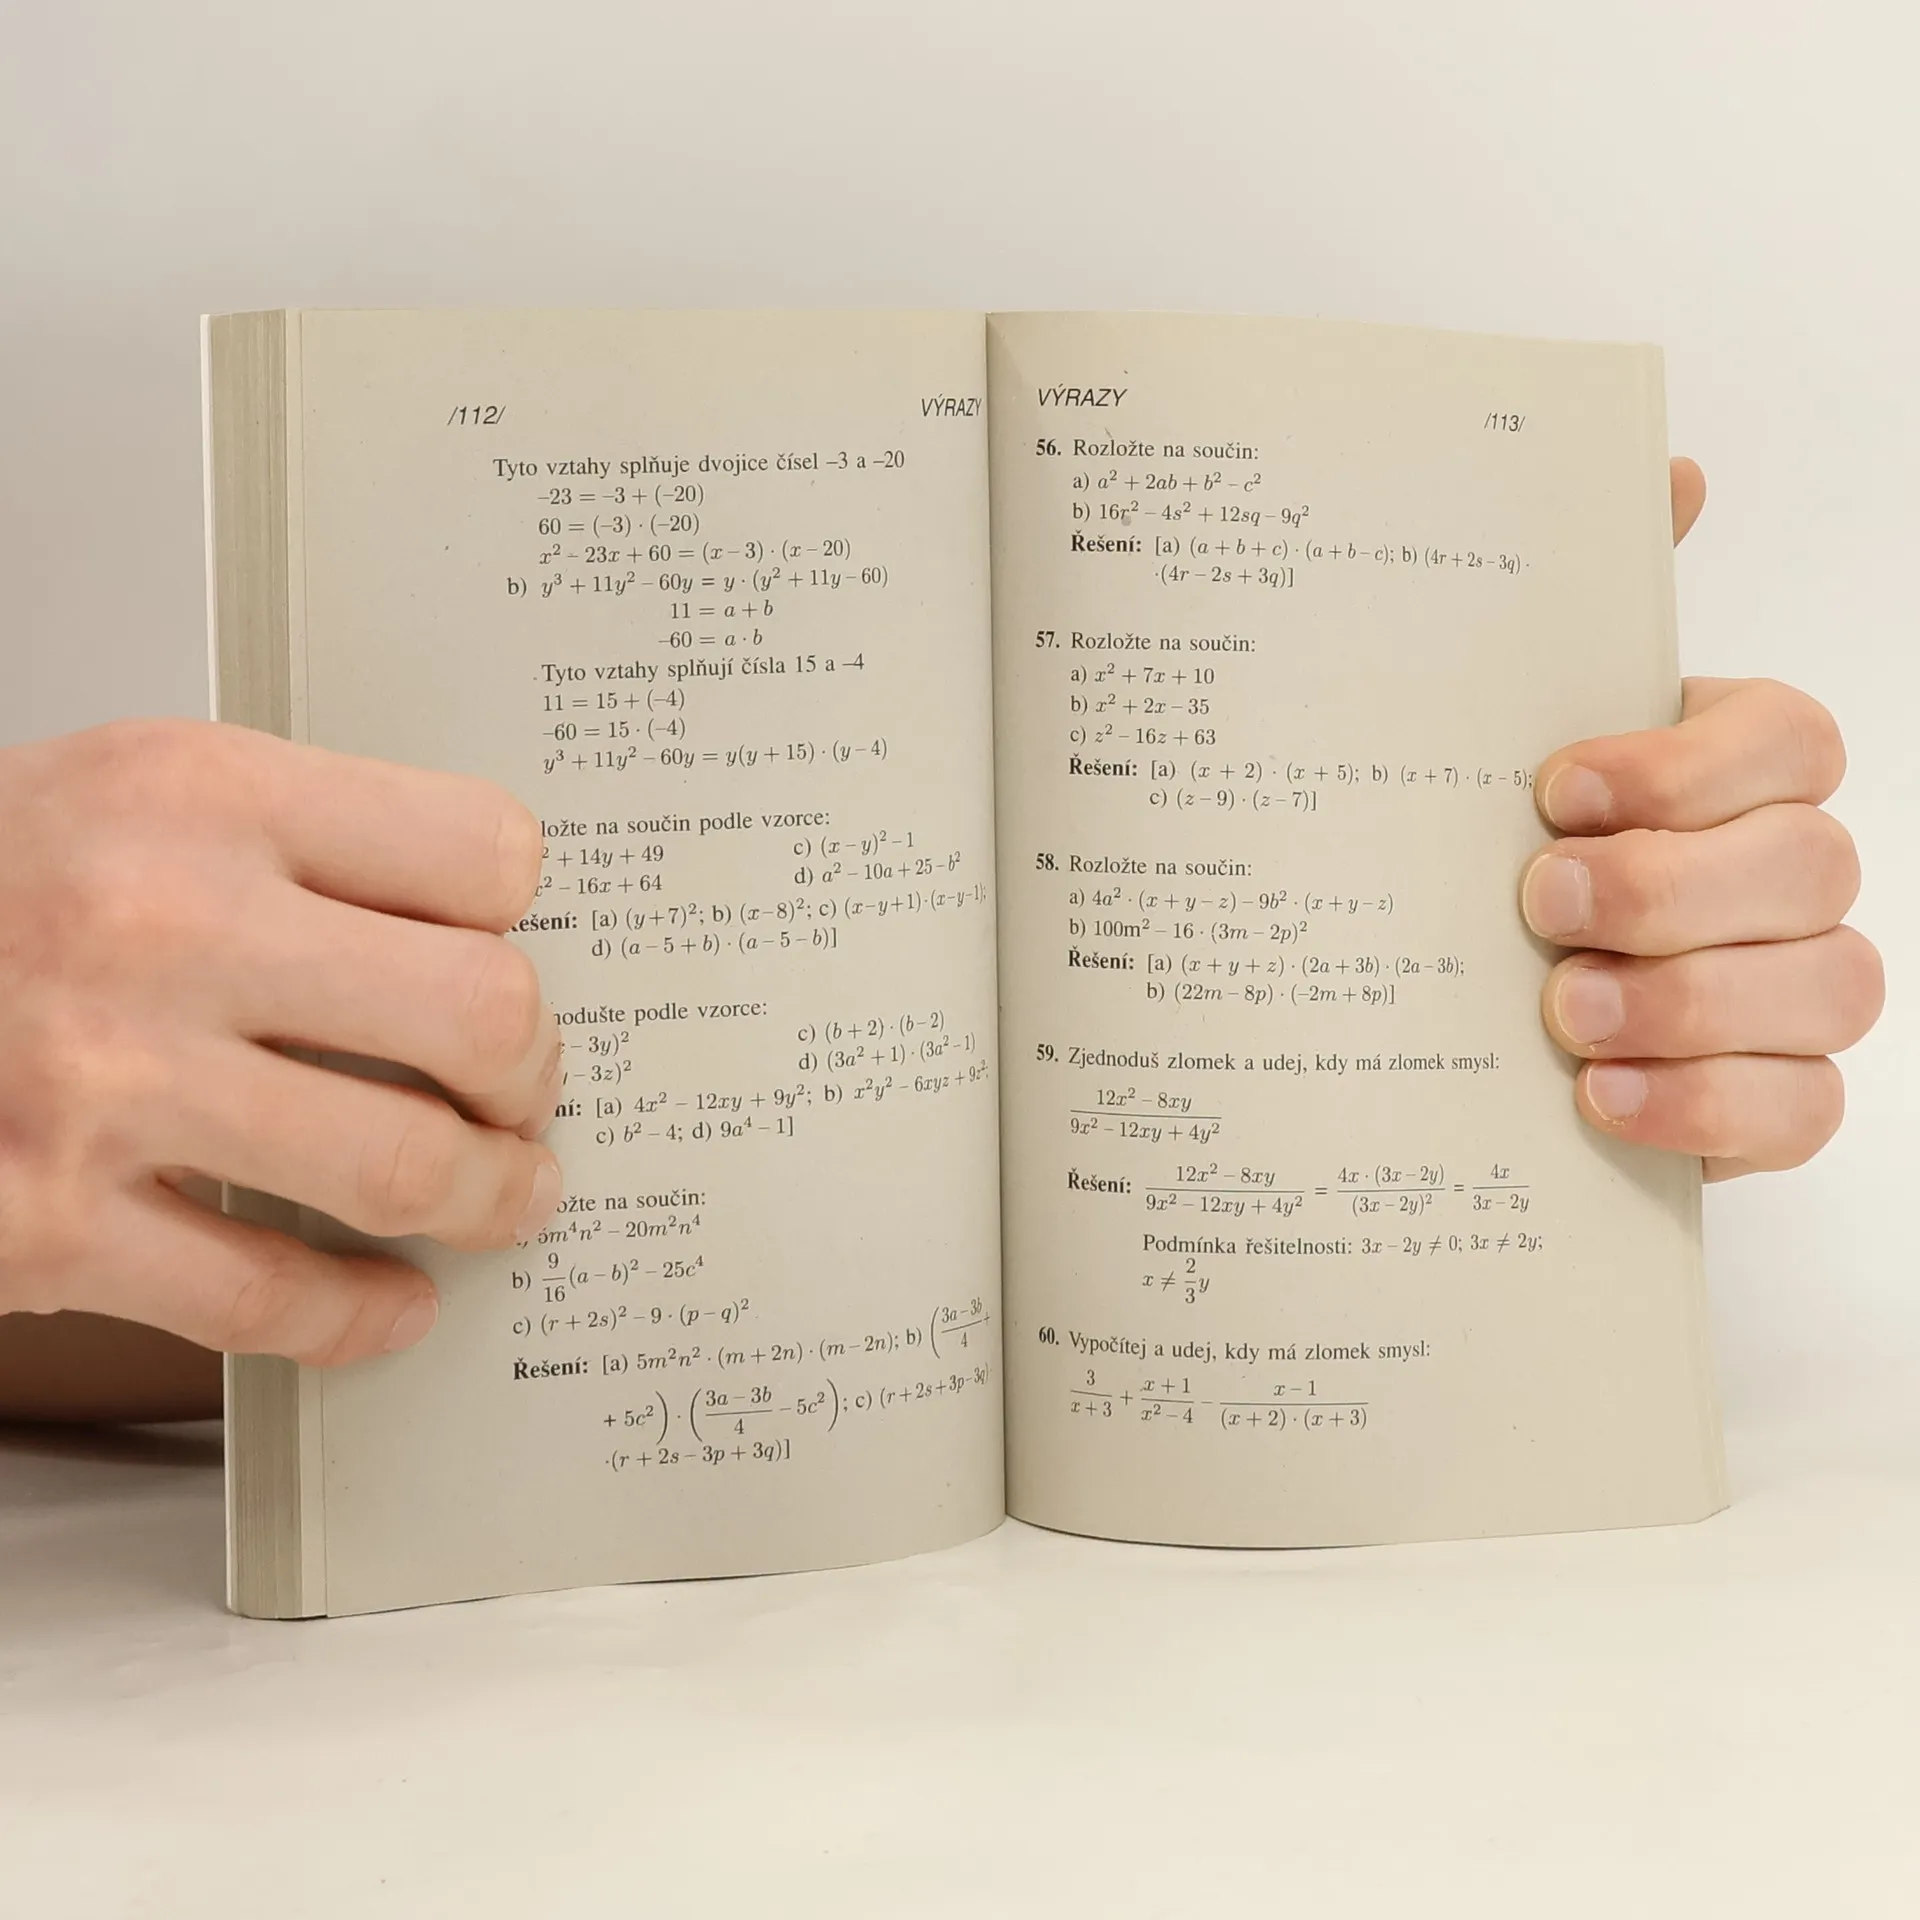 /112/ VÝRAZY
Tyto vztahy splňuje dvojice čísel –3 a –20
–23 = –3 + (–20)
60 = (–3) · (–20)
x² – 23x + 60 = (x – 3) · (x – 20)
b) y³ + 11y² – 60y = y · (y² + 11y – 60)
11 = a + b
–60 = a · b
Tyto vztahy splňují čísla 15 a –4
11 = 15 + (–4)
–60 = 15 · (–4)
y³ + 11y² – 60y = y(y + 15) · (y – 4)
ložte na součin podle vzorce:
² + 14y + 49 c) (x – y)² – 1
² – 16x + 64 d) a² – 10a + 25 – b²
ešení: [a) (y + 7)²; b) (x – 8)²; c) (x – y + 1) · (x – y – 1);
d) (a – 5 + b) · (a – 5 – b)]
nodušte podle vzorce:
– 3y)² c) (b + 2) · (b – 2)
– 3z)² d) (3a² + 1) · (3a² – 1)
ní: [a) 4x² – 12xy + 9y²; b) x²y² – 6xyz + 9z²;
c) b² – 4; d) 9a⁴ – 1]
ožte na součin:
5m⁴n² – 20m²n⁴
b) 9/16 (a – b)² – 25c⁴
c) (r + 2s)² – 9 · (p – q)²
Řešení: [a) 5m²n² · (m + 2n) · (m – 2n); b) ((3a – 3b)/4 +
+ 5c²) · ((3a – 3b)/4 – 5c²); c) (r + 2s + 3p – 3q)
·(r + 2s – 3p + 3q)]
VÝRAZY /113/
56. Rozložte na součin:
a) a² + 2ab + b² – c²
b) 16r² – 4s² + 12sq – 9q²
Řešení: [a) (a + b + c) · (a + b – c); b) (4r + 2s – 3q) ·
·(4r – 2s + 3q)]
57. Rozložte na součin:
a) x² + 7x + 10
b) x² + 2x – 35
c) z² – 16z + 63
Řešení: [a) (x + 2) · (x + 5); b) (x + 7) · (x – 5);
c) (z – 9) · (z – 7)]
58. Rozložte na součin:
a) 4a² · (x + y – z) – 9b² · (x + y – z)
b) 100m² – 16 · (3m – 2p)²
Řešení: [a) (x + y + z) · (2a + 3b) · (2a – 3b);
b) (22m – 8p) · (–2m + 8p)]
59. Zjednoduš zlomek a udej, kdy má zlomek smysl:
(12x² – 8xy)/(9x² – 12xy + 4y²)
Řešení: (12x² – 8xy)/(9x² – 12xy + 4y²) = (4x · (3x – 2y))/((3x – 2y)²) = 4x/(3x – 2y)
Podmínka řešitelnosti: 3x – 2y ≠ 0; 3x ≠ 2y;
x ≠ 2/3 y
60. Vypočítej a udej, kdy má zlomek smysl:
3/(x + 3) + (x + 1)/(x² – 4) – (x – 1)/((x + 2) · (x + 3))